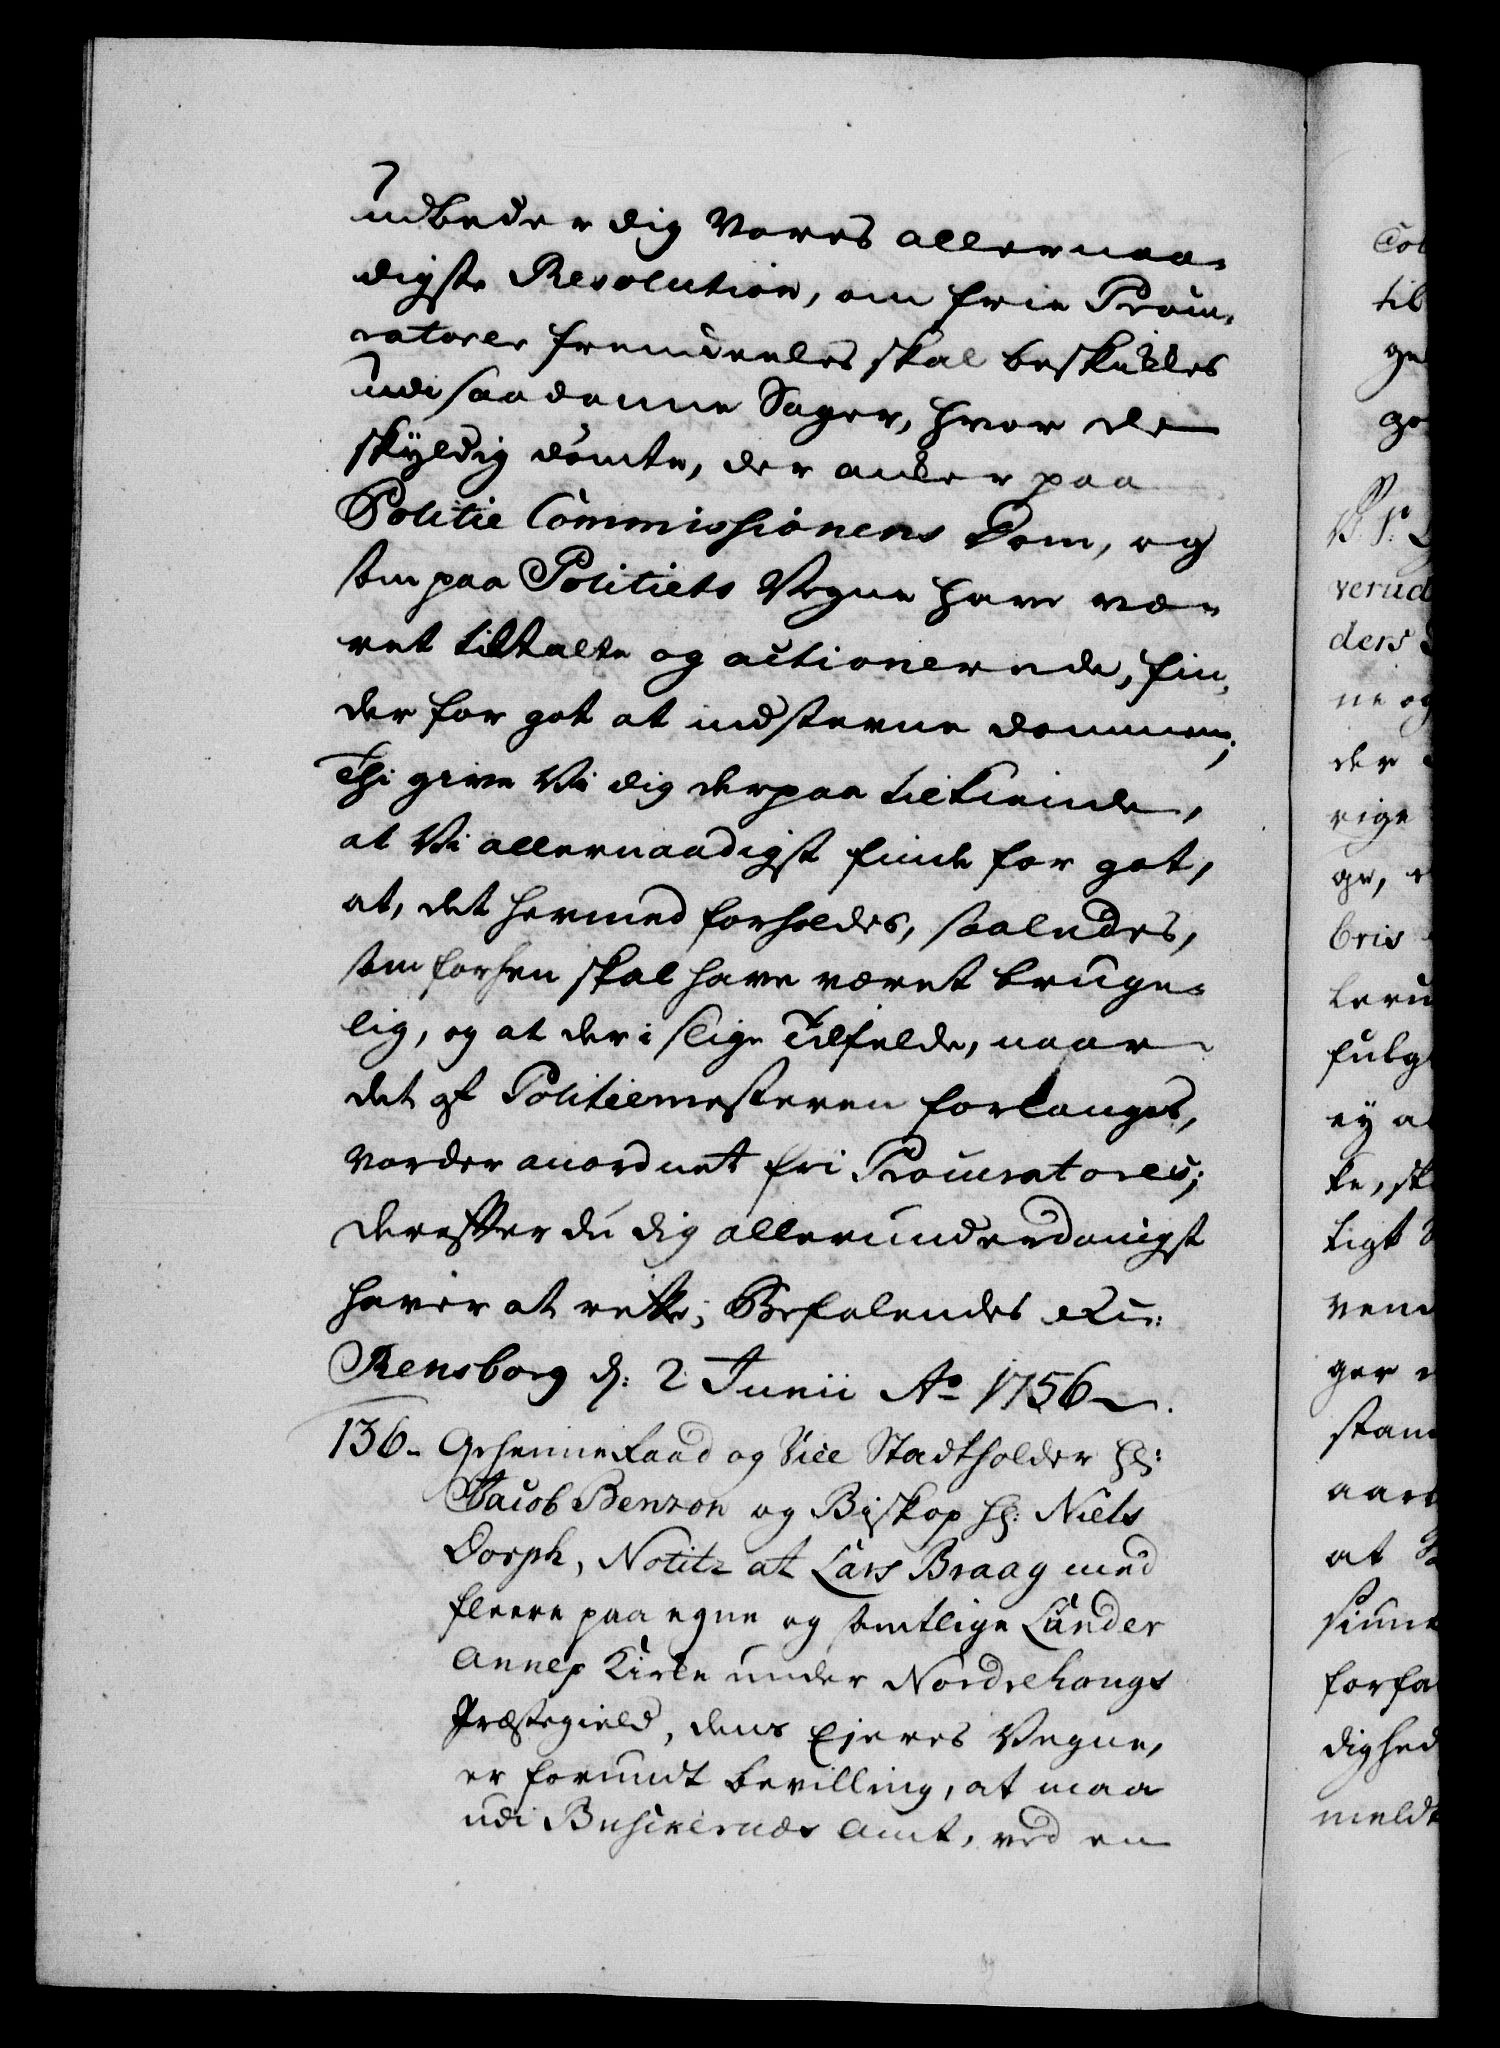 udbeder dig Vores allernaa-
digste Resolution, om frie Procu-
ratores fremdeeles skal beskikkes
udi saadanne Sager, hvor de
skyldig dømte, der anker paa
Politie Commissionens Dom, og
som paa Politiets Vegne have væ-
ret tiltalte og actionerede, fin-
der for got at indstevne dommen;
Thi give Vi dig derpaa tilkiende,
at Vi allernaadigst finde for got,
at, det hermed forholdes, saaledes,
som forhen skal have været bruge-
lig, og at der i slige Tilfelde, naar
det af Politiemesteren forlanges,
vorder anordnet fri Procuratores;
derefter du dig allerunderdanigst
haver at rette; Befalendes etc:
Rensborg d: 2 Junii Ao 1756.
136. Geheimeraad og Vice Stadtholder Hr:
Jacob Benzon og Biskop Hr: Niels
Dorph, Notitz at Lars Braag med
fleere paa egne og samtlige Lunder
Annex Kirke under Nordrehougs
Præstegield, dens Ejeres Vegne,
er forundt bevilling, at maa
udi Buskeruds Amt, ved en
Tol
til
ge
verud
ders
ne og
der
rige
ge,
bris
fulg
ey a
ke, sk
ligt
ger
stam
at
forfa
dighed
meldt